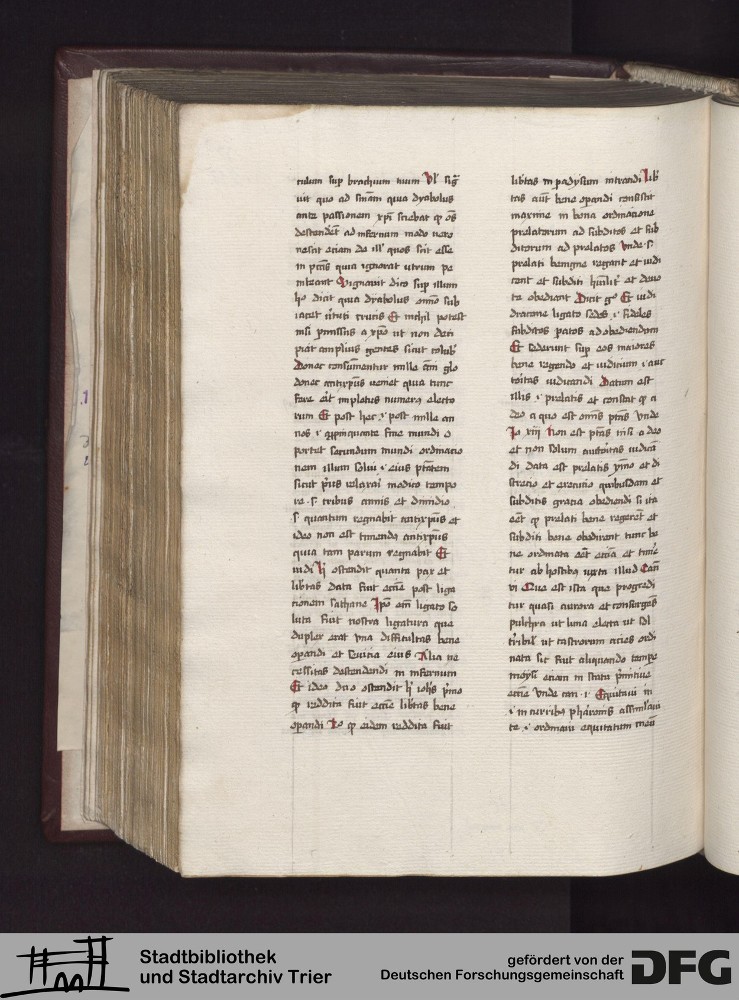 culum sup brachium tuum Vl' sig̅
uit quo ad sm̅am quia dyabolus
ante passionem xpi̅ sciebat qp os̅
descendēt ad infernum modo uero
nescit eciam de ill' quos scit esse
in pctīs quia ignorat utrum pe
niteant Signauit dico sup illum
hō dicit quia dyabolus om̅o sub
iacet uirtuti crucis Et nichil potest
nisi pmissus a xpō ut non deci
piat amplius gentes sicut
Donec consūmentur mille
donec antixpūs ueniet quia tunc
fere erit impletus numerus electo
rum Et post hec .i. post mille an
nos .i. appinquante fine mundi o
portet secundum mundi ordinacio
nem illum solui .i. eius ptātem
sicut pius relaxari modico tempo
re .s. tribus annis et dimidio
.s. quantum regnabit antixpūs et
ideo non est timendus antixpūs
quia tam parum regnabit Et
uidi hī ostendit quanta pax et
libtas data fuit eccīe post liga
tionem sathane Ipō em̅ ligato so
luta fuit nostra ligatura que
duplex erat vna difficultas bene
opandi et seuicia eius Alia ne
cessitas descendendi in infernum
Et ideo dūo ostendit hī iohīs pīmo
qp reddita fuit eccīe libtas bene
opandi qp eidem reddita fuit
libtas in padysum intrandi Lib
tas aūt bene opandi consistit
maxime in bona ordinacione
prelatorum ad subditos et sub
ditorum ad prelatos Vnde .s.
prelati benigne regant et iudi
cent et subditi hūilit' et deuo
te obediant Dicit gō Et uidi
dracone ligato sedes .i. fideles
subditos patos ad obediendum
Et sederunt sup eos maiores
bene regendo et iudicium .i. auc
toitas iudicandi Datum est
illis .i. prelatis et constat qp a
deo a quo est omīs ptās Vnde
Io xiij Non est ptās nisi a deo
et non solum auctoitas iudicā
di data est prelatis ymo et di
screcio et execucio quibusdam et
subditis gracia obediendi si ita
eēt qp prelati bene regerēt et
subditi bene obedirent tunc be
ne ordinata eēt eccīa et time
tur ab hostibus iuxta illud Can
vi Que est ista que progredi
tur quasi aurora et consurgens
pulchra ut luna electa ut sol
tribil' ut castrorum acies ordi
nata sic fuit aliquando tempe
moysi eciam in statu pīmitiue
eccīe Vnde can .i. Equitatui m̄
.i. in curribus pharonis assimilaui
te .i. ordinaui equitatum meū
Stadtbibliothek
und Stadtarchiv Trier
gefördert von der
Deutschen Forschungsgemeinschaft
DFG